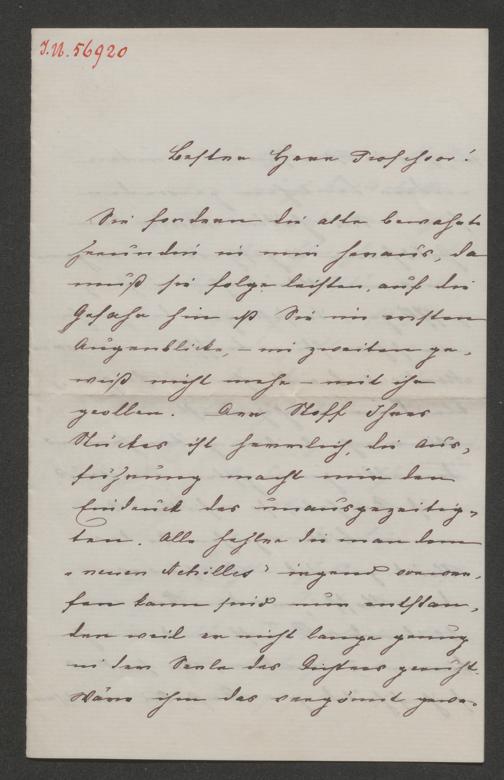 I.N. 56920
Bester Herr Professor!
Sie fordern die alte bewährte
Freundin in mir heraus, da
muß sie folge leisten, auf die
Gefahr hin dß Sie im ersten
Augenblicke, – im zweiten ge-
wiß nicht mehr – mit ihr
grollen. Der Stoff Ihres
Stückes ist herrlich, die Aus-
führung macht mir den
Eindruck des unausgezeitig-
ten. Alle Fehler die man dem
„neuen Achilles" irgend vorwer-
fen kann sind nur entstan-
den weil er nicht lange genug
in der Seele des Dichters geruht.
Wäre ihm das vergönnt gewe-